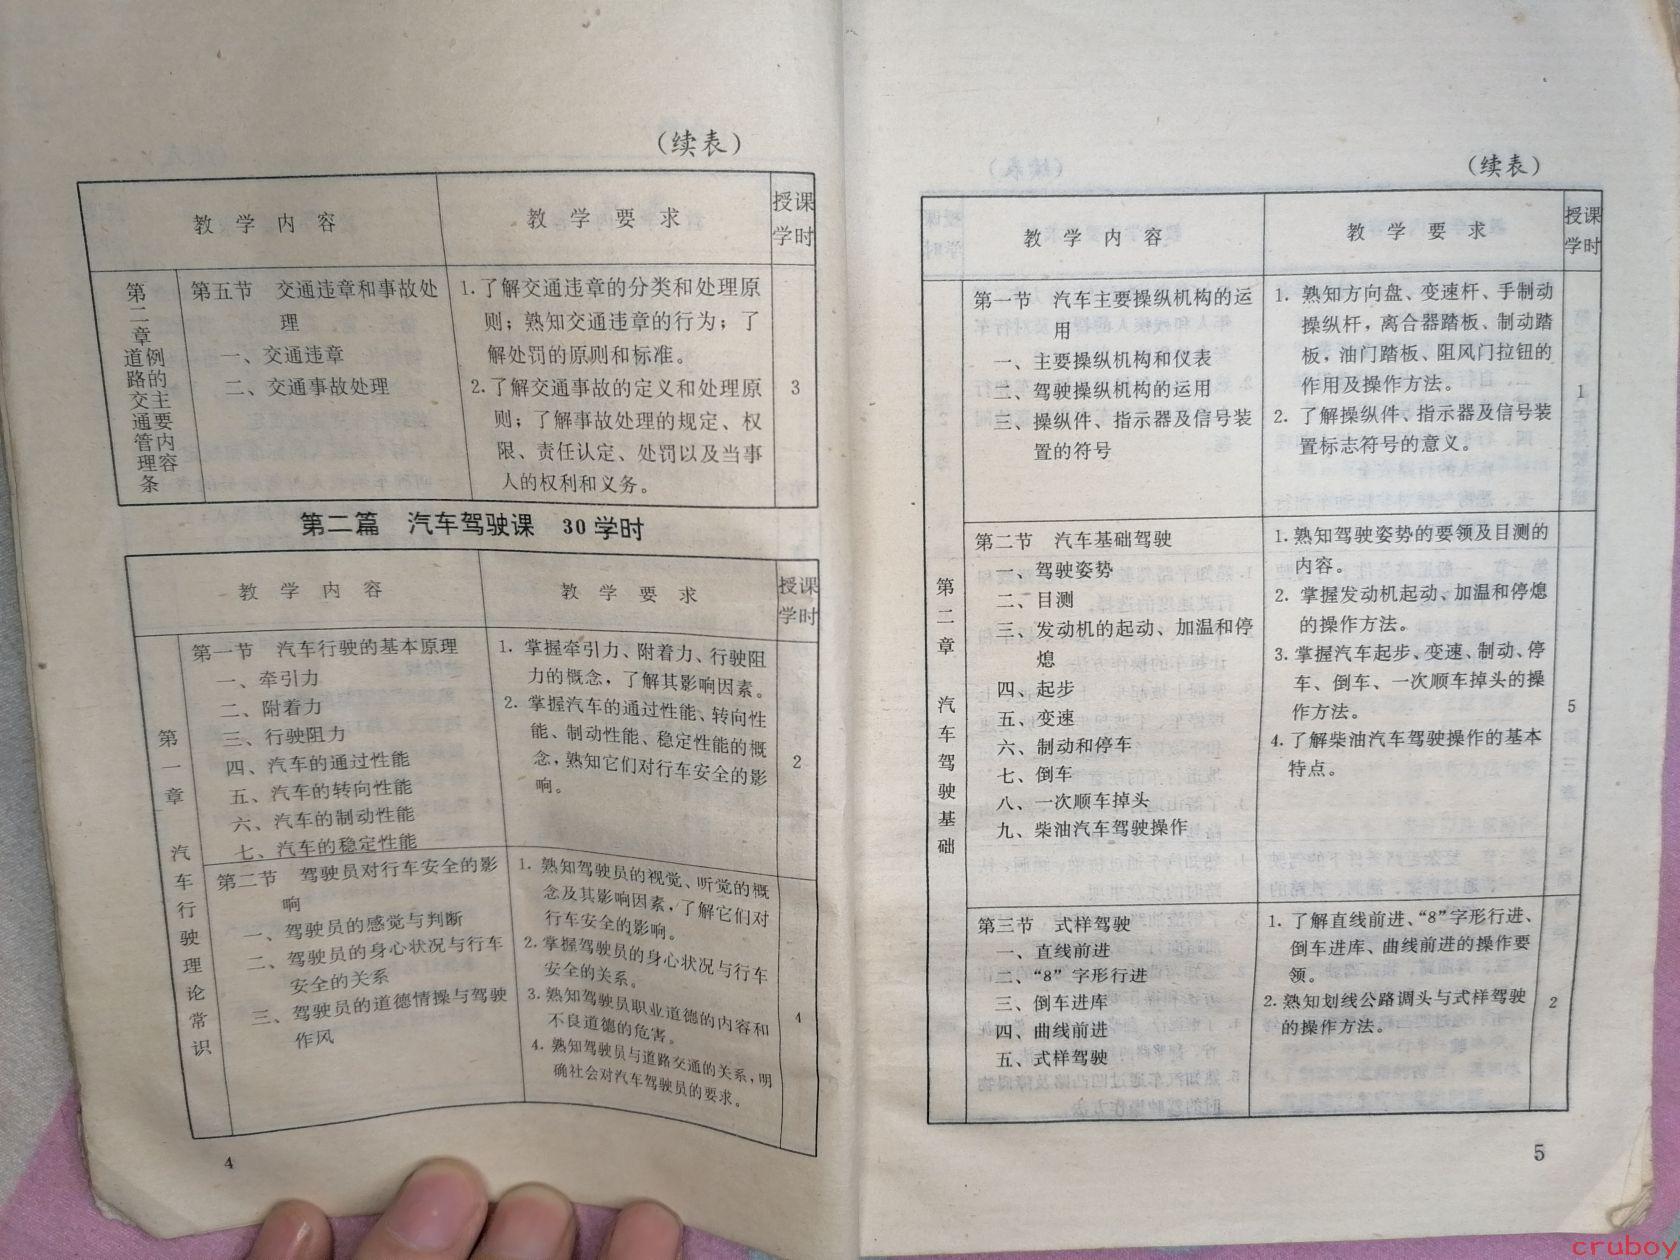 （续表）
教 学 内 容
教 学 要 求
授课
学时
第二章 道路交通管理条
例的主要内容
第五节 交通违章和事故处
理
一、交通违章
二、交通事故处理
1.了解交通违章的分类和处理原
则；熟知交通违章的行为；了
解处罚的原则和标准。
2.了解交通事故的定义和处理原
则；了解事故处理的规定、权
限、责任认定、处罚以及当事
人的权利和义务。
3
第二篇 汽车驾驶课 30学时
教 学 内 容
教 学 要 求
授课
学时
第一章 汽车行驶理论常识
第一节 汽车行驶的基本原理
一、牵引力
二、附着力
三、行驶阻力
四、汽车的通过性能
五、汽车的转向性能
六、汽车的制动性能
七、汽车的稳定性能
1. 掌握牵引力、附着力、行驶阻
力的概念，了解其影响因素。
2. 掌握汽车的通过性能、转向性
能、制动性能、稳定性能的概
念，熟知它们对行车安全的影
响。
2
第二节 驾驶员对行车安全的影
响
一、驾驶员的感觉与判断
二、驾驶员的身心状况与行车
安全的关系
三、驾驶员的道德情操与驾驶
作风
1. 熟知驾驶员的视觉、听觉的概
念及其影响因素，了解它们对
行车安全的影响。
2.掌握驾驶员的身心状况与行车
安全的关系。
3. 熟知驾驶员职业道德的内容和
不良道德的危害。
4. 熟知驾驶员与道路交通的关系，明
确社会对汽车驾驶员的要求。
4
4
（续表）
教 学 内 容
教 学 要 求
授课
学时
第二章 汽车驾驶基础
第一节 汽车主要操纵机构的运
用
一、主要操纵机构和仪表
二、驾驶操纵机构的运用
三、操纵件、指示器及信号装
置的符号
1. 熟知方向盘、变速杆、手制动
操纵杆，离合器踏板、制动踏
板，油门踏板、阻风门拉钮的
作用及操作方法。
2. 了解操纵件、指示器及信号装
置标志符号的意义。
1
第二节 汽车基础驾驶
一、驾驶姿势
二、目测
三、发动机的起动、加温和停
熄
四、起步
五、变速
六、制动和停车
七、倒车
八、一次顺车掉头
九、柴油汽车驾驶操作
1.熟知驾驶姿势的要领及目测的
内容。
2. 掌握发动机起动、加温和停熄
的操作方法。
3.掌握汽车起步、变速、制动、停
车、倒车、一次顺车掉头的操
作方法。
4.了解柴油汽车驾驶操作的基本
特点。
5
第三节 式样驾驶
一、直线前进
二、“8”字形行进
三、倒车进库
四、曲线前进
五、式样驾驶
1. 了解直线前进、“8”字形行进、
倒车进库、曲线前进的操作要
领。
2.熟知划线公路调头与式样驾驶
的操作方法。
2
5
cruboy